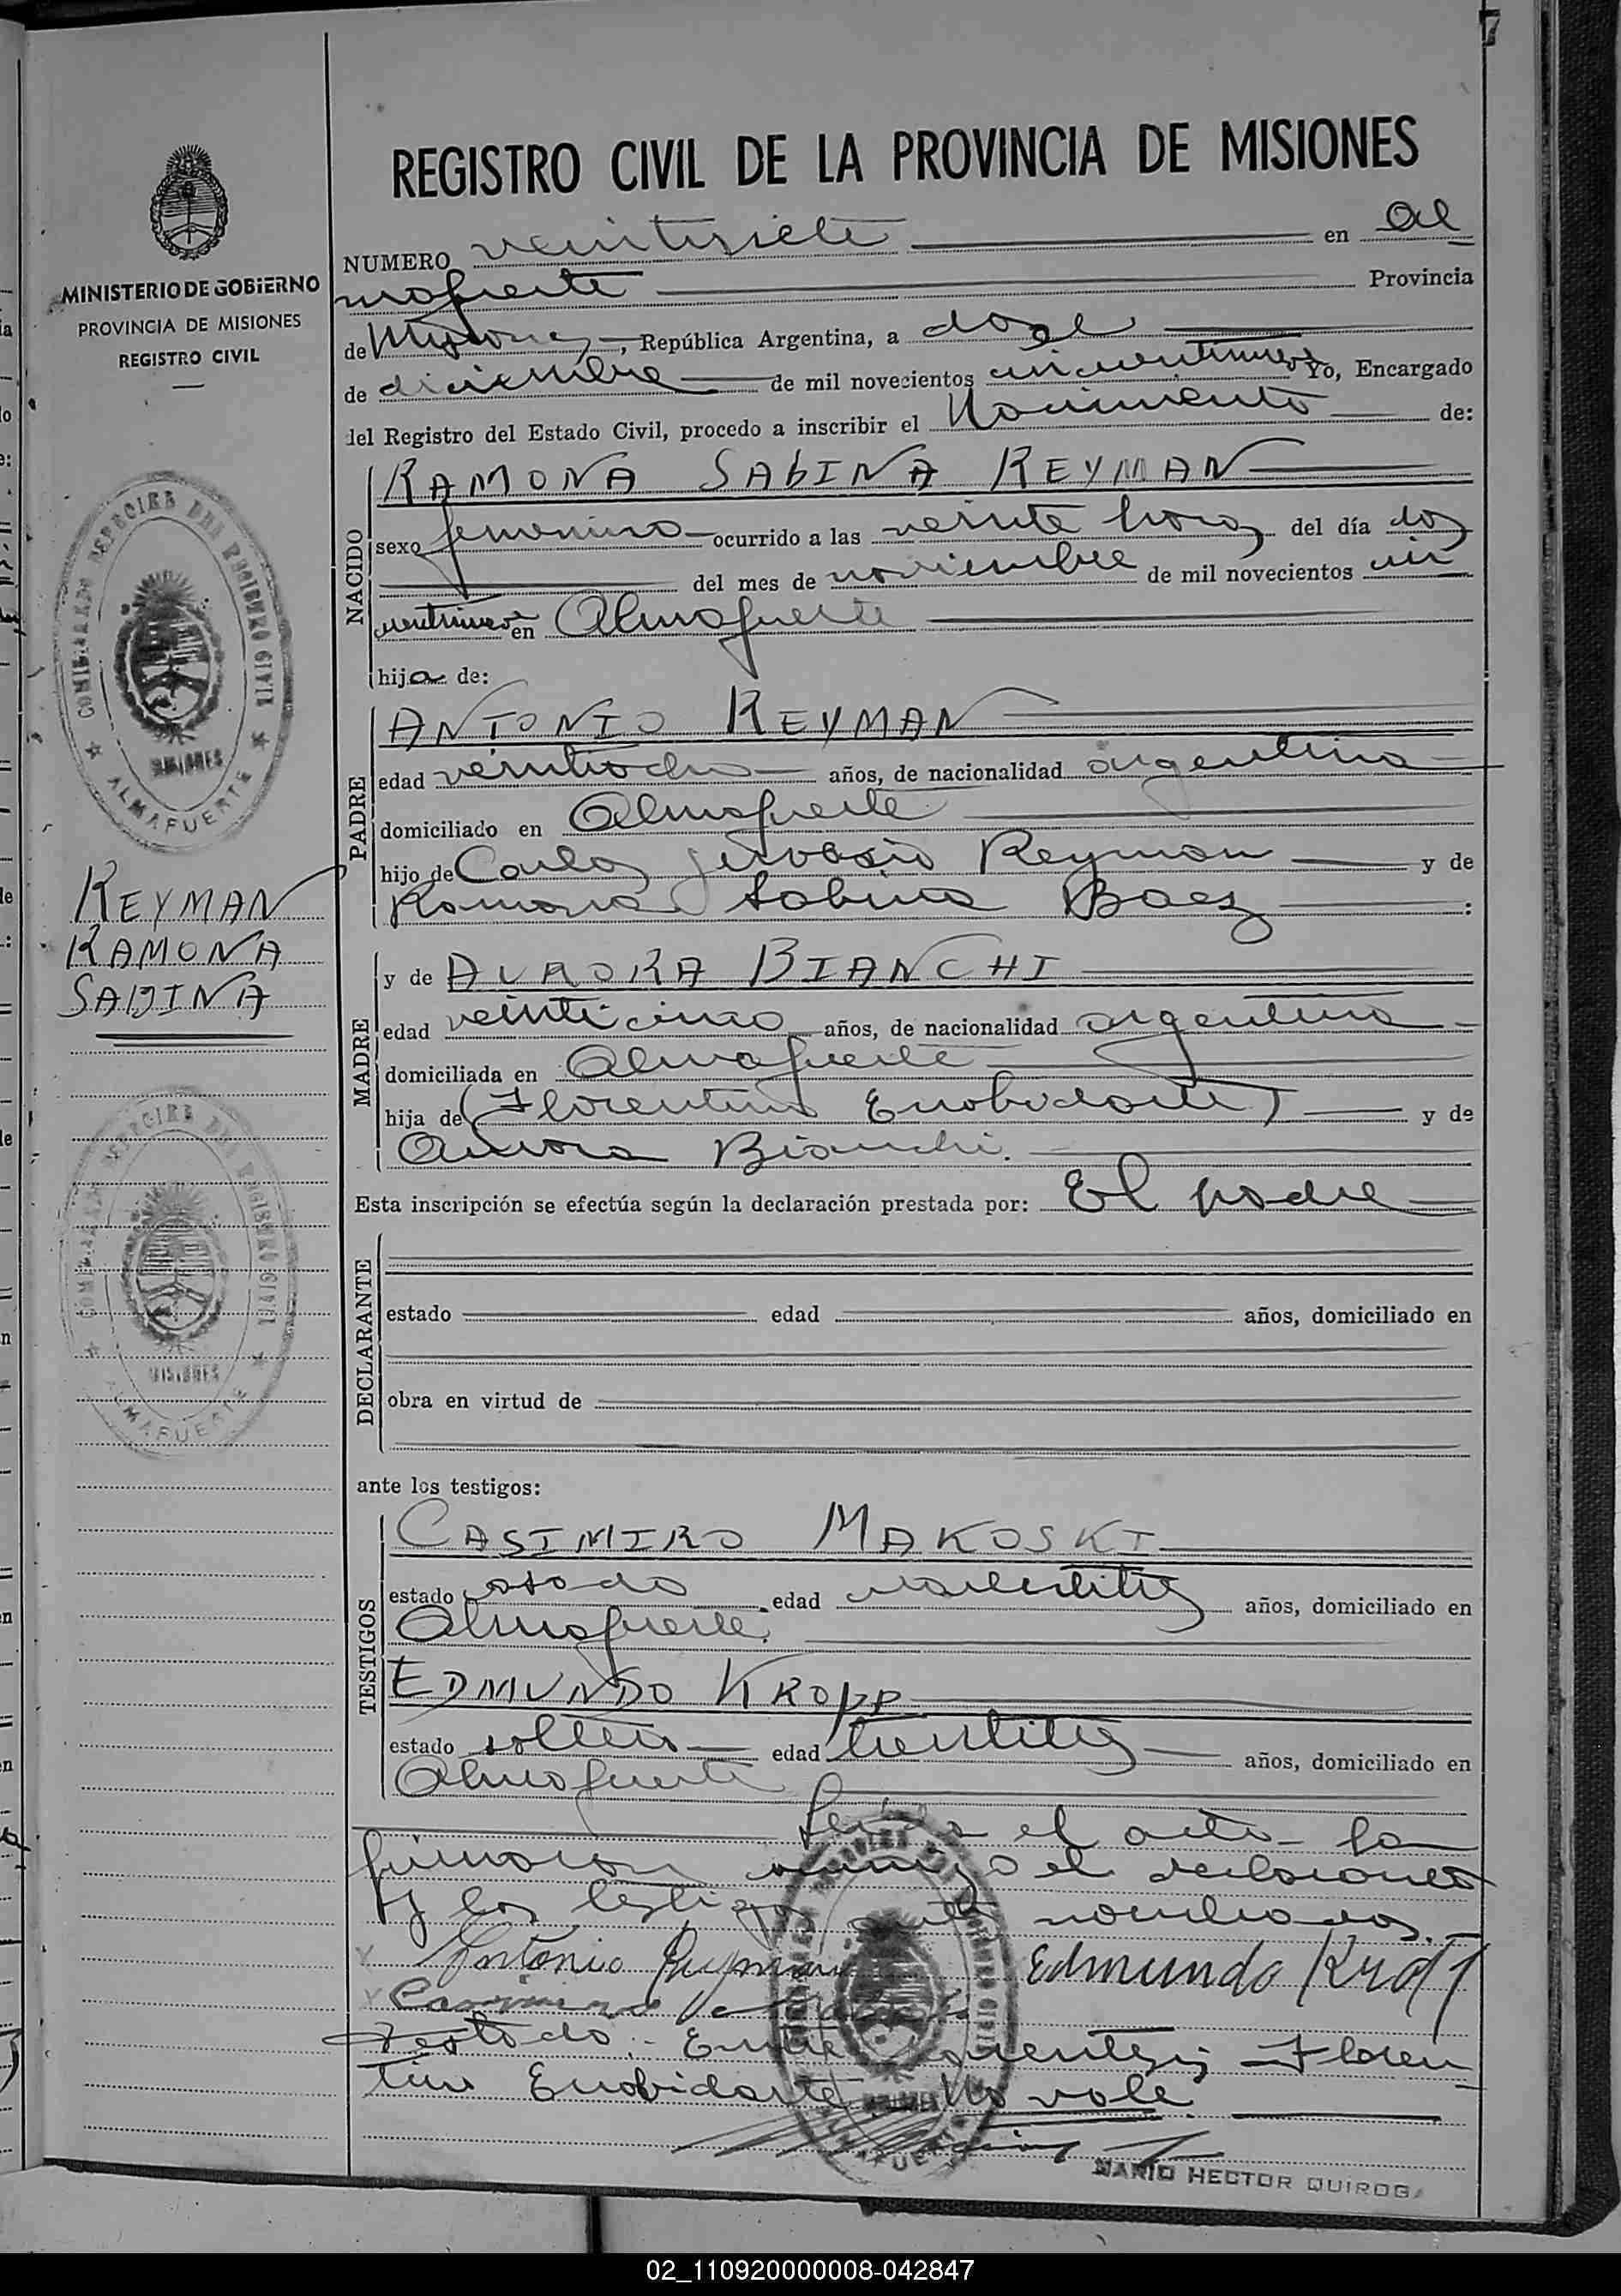 REGISTRO CIVIL DE LA PROVINCIA DE MISIONES
MINISTERIO DE GOBIERNO
PROVINCIA DE MISIONES
REGISTRO CIVIL
NUMERO veintisiete en Al
mafuerte Provincia
de Misiones, República Argentina, a doce
de diciembre de mil novecientos cincuentinueve Yo, Encargado
del Registro del Estado Civil, procedo a inscribir el Nacimiento de:
NACIDO
RAMONA SABINA REYMAN
sexo femenino ocurrido a las veinte horas del día dos
del mes de noviembre de mil novecientos cin
cuentinueve en Almafuerte
hija de:
PADRE
ANTONIO REYMAN
edad veintiocho años, de nacionalidad argentina
domiciliado en Almafuerte
hijo de Carlos Jervasio Reyman y de
Ramona Sabina Baez :
REYMAN
RAMONA
SABINA
MADRE
y de AURORA BIANCHI
edad veinticinco años, de nacionalidad argentina
domiciliada en Almafuerte
hija de (Florentino Enobidarte) y de
Aurora Bianchi.
Esta inscripción se efectúa según la declaración prestada por: El padre
DECLARANTE
estado edad años, domiciliado en
obra en virtud de
ante los testigos:
TESTIGOS
CASIMIRO MAKOSKI
estado casado edad años, domiciliado en
Almafuerte.
EDMUNDO KROPP
estado soltero edad treintitres años, domiciliado en
Almafuerte
Leida el acta la
firmaron conmigo el declarante
y los testigos antes nombrados.
Antonio Reyman Edmundo Kropp
Casimiro
Testado: Entre parentesis Floren
tino Enobidarte No vale.
MARIO HECTOR QUIROGA
COMISARIA DE REGISTRO CIVIL
MISIONES
ALMAFUERTE
MISIONES
ALMAFUERTE
02_110920000008-042847